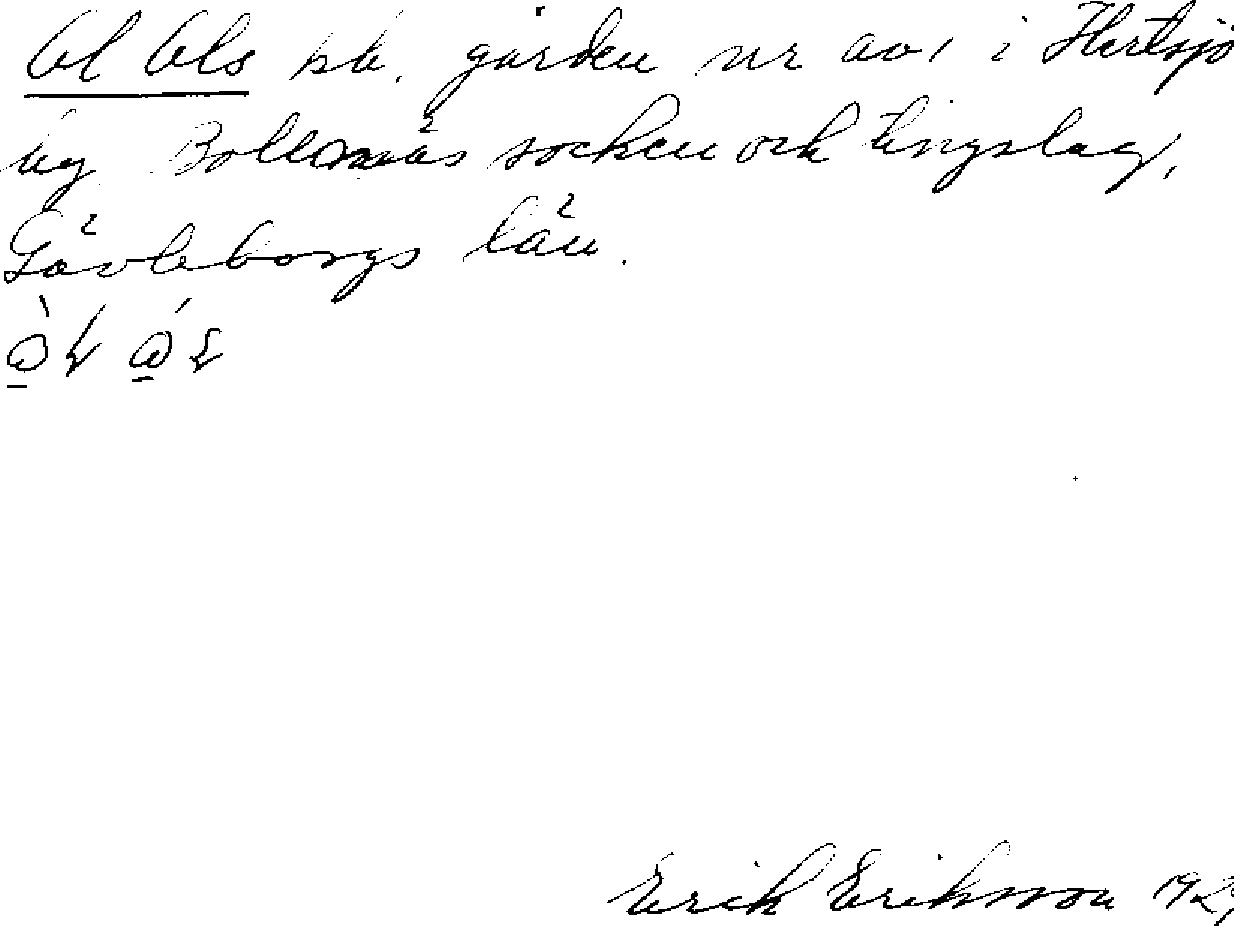 Ol Ols på. gården nr av 1 i Hertsjö
by Bollnäs socken och tingslag,
Gävleborgs län.
Erik Eriksson 192